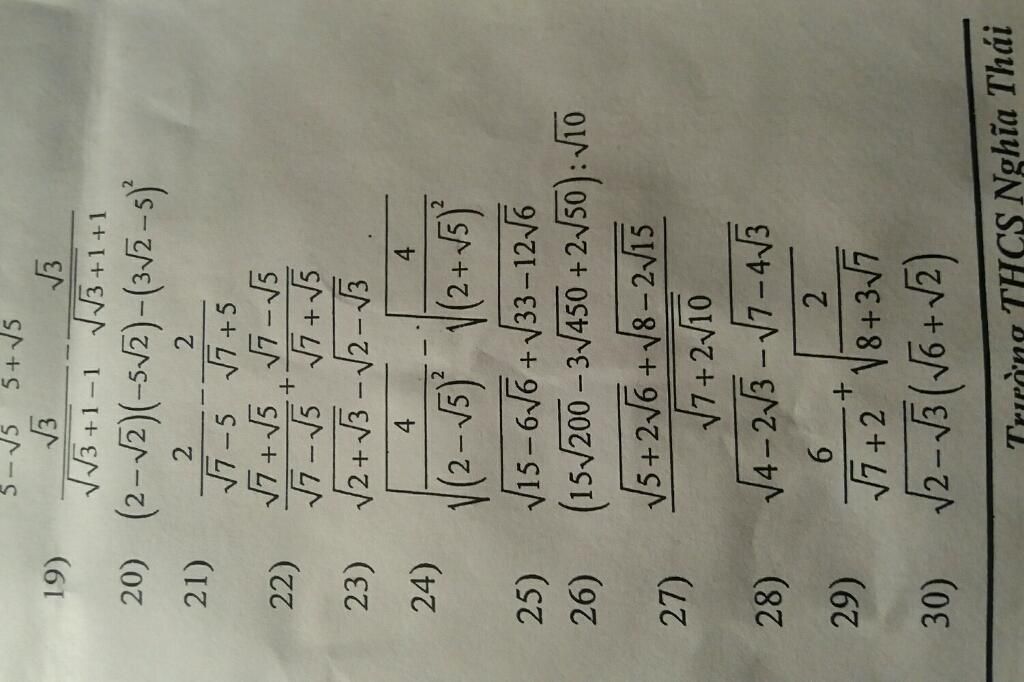 5−√5 5+√5
19) √3/(√(√3+1)−1) − √3/(√(√3+1)+1)
20) (2−√2)(−5√2)−(3√2−5)²
21) 2/(√7−5) − 2/(√7+5)
22) (√7+√5)/(√7−√5) + (√7−√5)/(√7+√5)
23) √(2+√3) − √(2−√3)
24) √(4/(2−√5)²) − √(4/(2+√5)²)
25) √(15−6√6) + √(33−12√6)
26) (15√200 − 3√450 + 2√50) : √10
27) (√(5+2√6) + √(8−2√15))/√(7+2√10)
28) √(4−2√3) − √(7−4√3)
29) 6/(√7+2) + √(2/(8+3√7))
30) √(2−√3)(√6+√2)
Trường THCS Nghĩa Thái